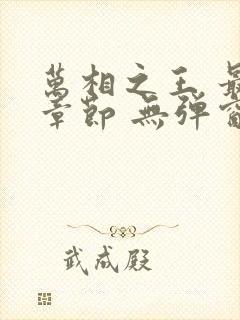 萬相之王 最
章節 無彈窗
武成殿